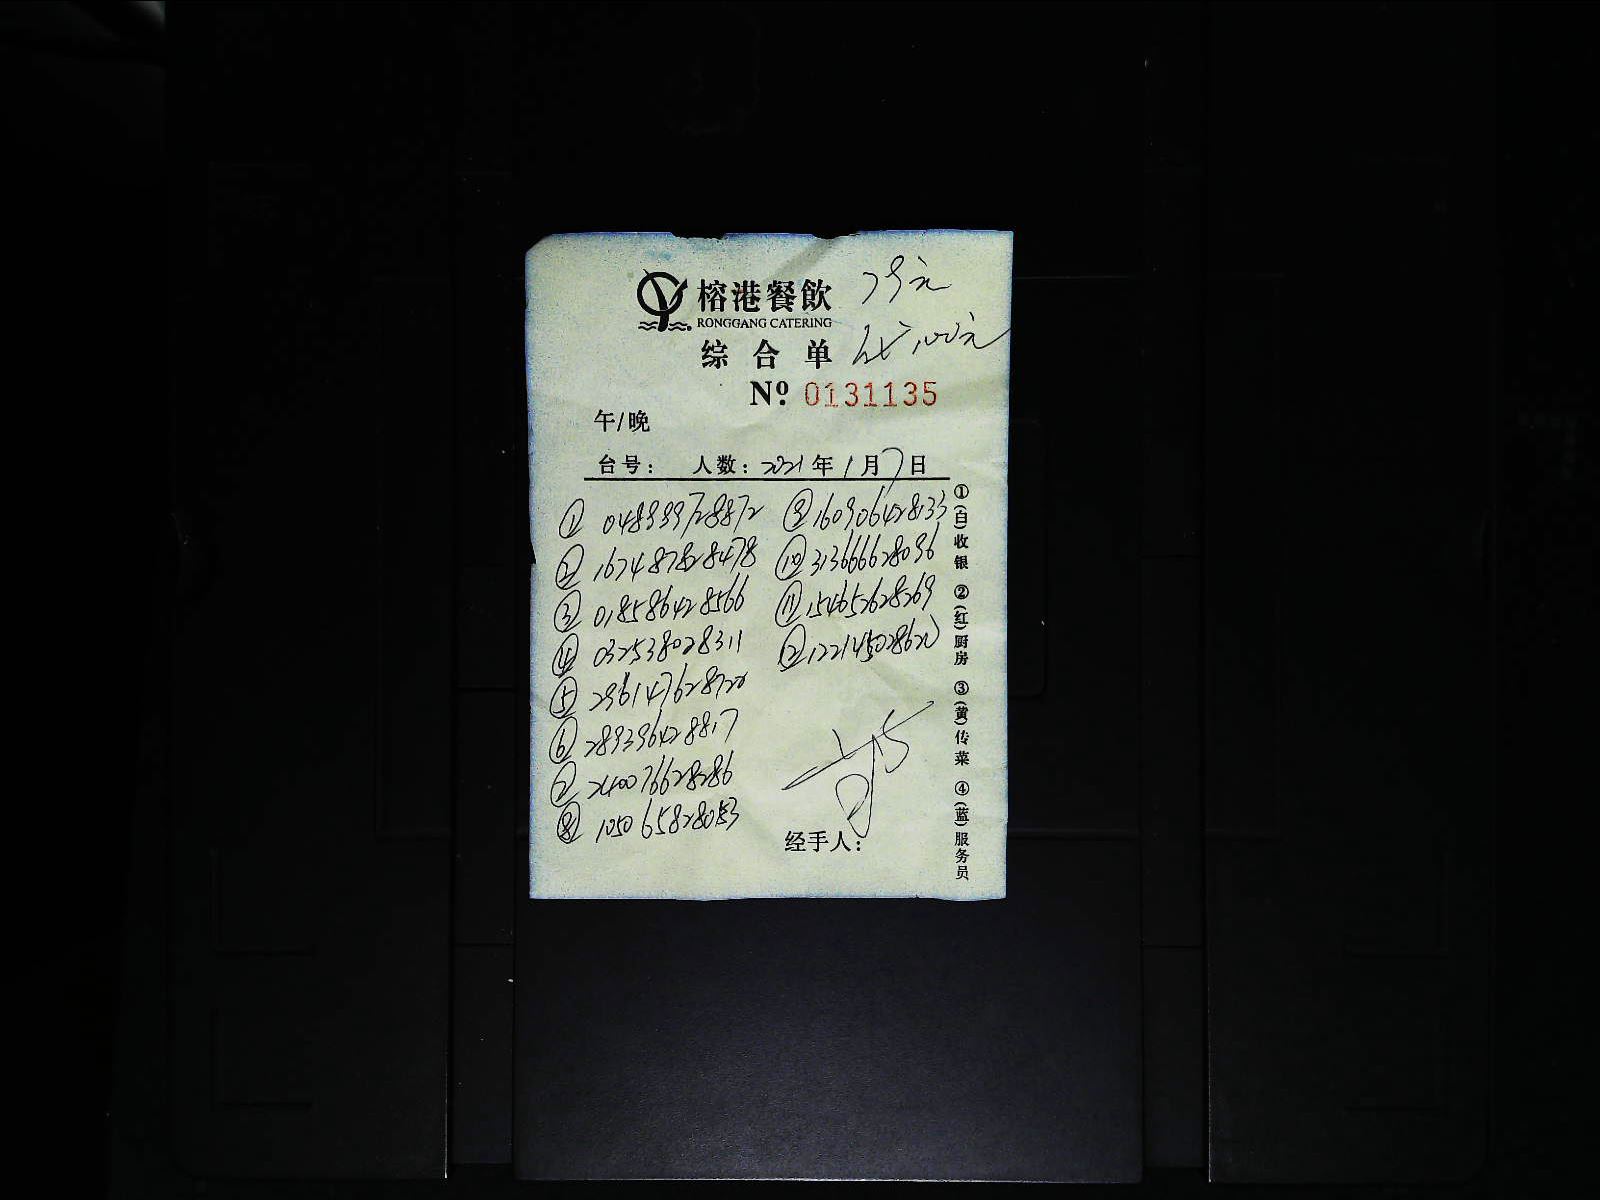 榕港餐飲 79元
RONGGANG CATERING
综合单 100元
Nº 0131135
午/晚
台号： 人数：2021年1月7日
① 048939728872
② 167487828478
③ 018586428566
④ 032538028311
⑤ 296147628720
⑥ 289396428817
⑦ 240076628286
⑧ 105065828053
⑨ 160906428133
⑩ 313666628096
⑪ 154652628269
⑫ 122145028620
经手人：
①(白)收银 ②(红)厨房 ③(黄)传菜 ④(蓝)服务员